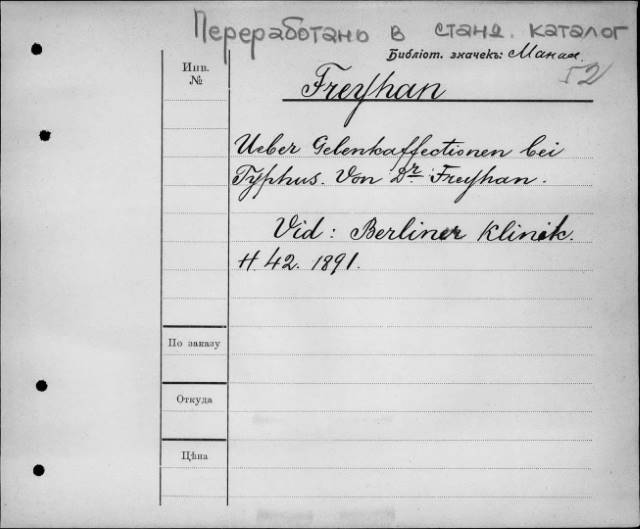 Переработанъ в станд. каталог
Библіот. значекъ:
52
Инв.
№
Freyhan
Ueber Gelenkaffectionen bei
Typhus. Von Dr. Freyhan.
Vid: Berliner Klinik.
H. 42. 1891.
По заказу
Откуда
Цѣна